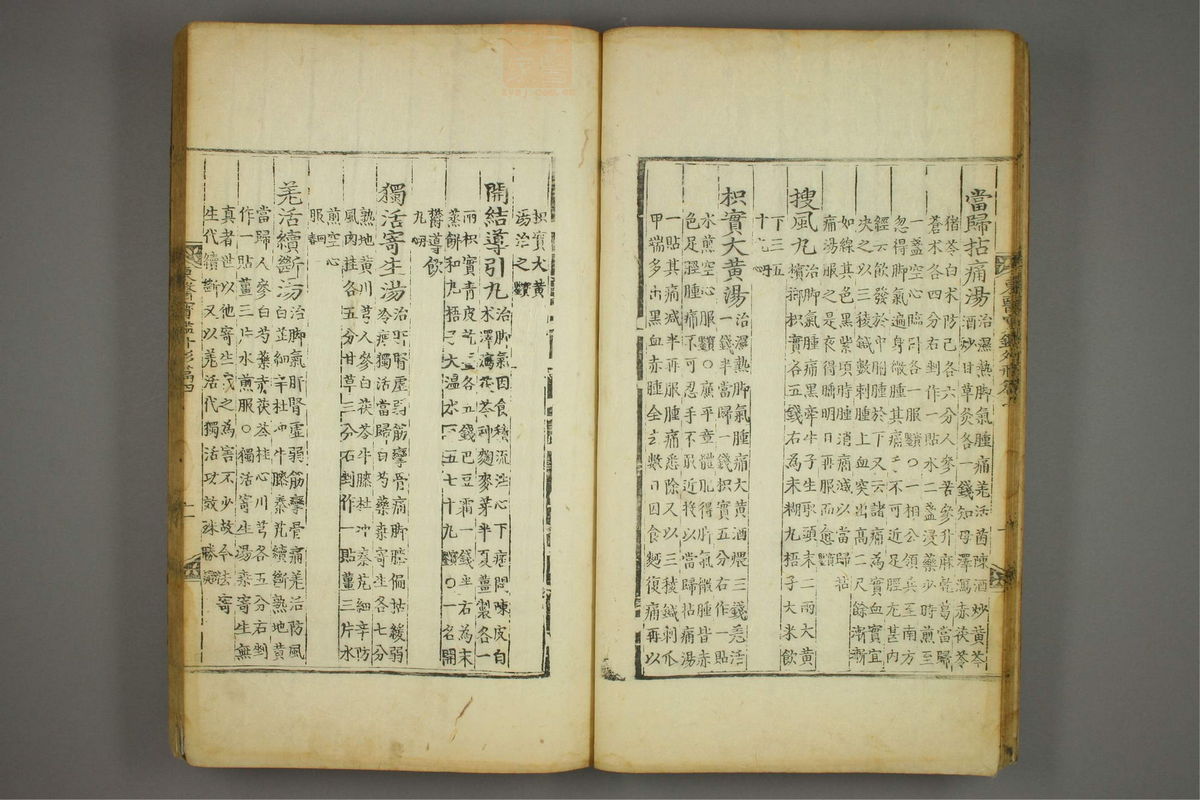 當歸拈痛湯治濕熱脚氣腫痛羌活茵陳酒炒黃芩
酒炒甘草灸各一錢知母澤瀉赤茯苓
猪苓白朮防己各六分人參苦參升麻乾葛當歸
蒼朮各四分右剉作一貼水二盞浸藥少時煎至
一盞空心臨臥各一服○一相公領兵至南方
忽得脚氣遍身微腫其痛不可近足脛尤甚內
經云飮發於中胕腫於下又云諸痛爲實血實宜
决之以三稜鍼數刺腫上血突出高二尺餘漸漸
如線其色黑紫頃時腫消痛減以當歸拈
痛湯服之是夜得睡明日再服而愈
搜風丸治脚氣腫痛黑牽牛子生取頭末二兩大黃
檳榔枳實各五錢右爲末糊丸梧子大米飮
下三五
十丸
枳實大黃湯治濕熱脚氣腫痛大黃酒煨三錢羌活
一錢半當歸一錢枳實五分右作一貼
水煎空心服○廣平童體肥得脚氣髐腫皆赤
色足脛腫痛不可忍手不敢近後以當歸拈痛湯
一貼其痛減半再服腫痛悉除又以三稜鍼刺爪
甲端多出黑血赤腫全去數日因食麵復痛再以
枳實大黃
湯治之
開結導引丸治脚氣因食積流注心下痞悶陳皮白
朮澤瀉茯苓神麴麥芽半夏薑製各一
兩枳實靑皮乾薑各五錢巴豆霜一錢半右爲末
蒸餠和丸梧子大溫水下五七十丸○一名開
鬱導飮
丸
獨活寄生湯治肝腎虛弱筋攣骨痛脚膝偏枯緩弱
冷痺獨活當歸白芍藥桑寄生各七分
熟地黃川芎人參白茯苓牛膝杜冲秦艽細辛防
風肉桂各五分甘草三分右剉作一貼薑三片水
煎空心
服
羌活續斷湯治脚氣肝腎虛弱筋攣骨痛羌活防風
白芷細辛杜冲牛膝秦艽續斷熟地黃
當歸人參白芍藥赤茯苓桂心川芎各五分右剉
作一貼薑三片水煎服○獨活寄生湯桑寄生無
眞者世以他寄生代之爲害不少故今法寄
生代續斷又以羌活代獨活功效殊勝